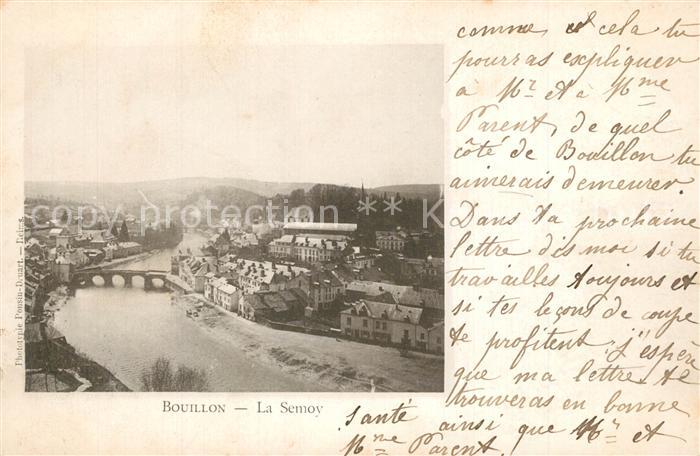 comme et cela tu
pourras expliquer
à Mr et à Mme
Parent, de quel
côté de Bouillon tu
aimerais demeurer.
Dans ta prochaine
lettre dis moi si tu
travailles toujours et
si tes leçons de coupe
te profitent. J'espère
que ma lettre te
trouveras en bonne
santé ainsi que Mr et
Mme Parent.
Phototypie Ponsin-Druart. — Reims.
BOUILLON — La Semoy
copy-card ** K